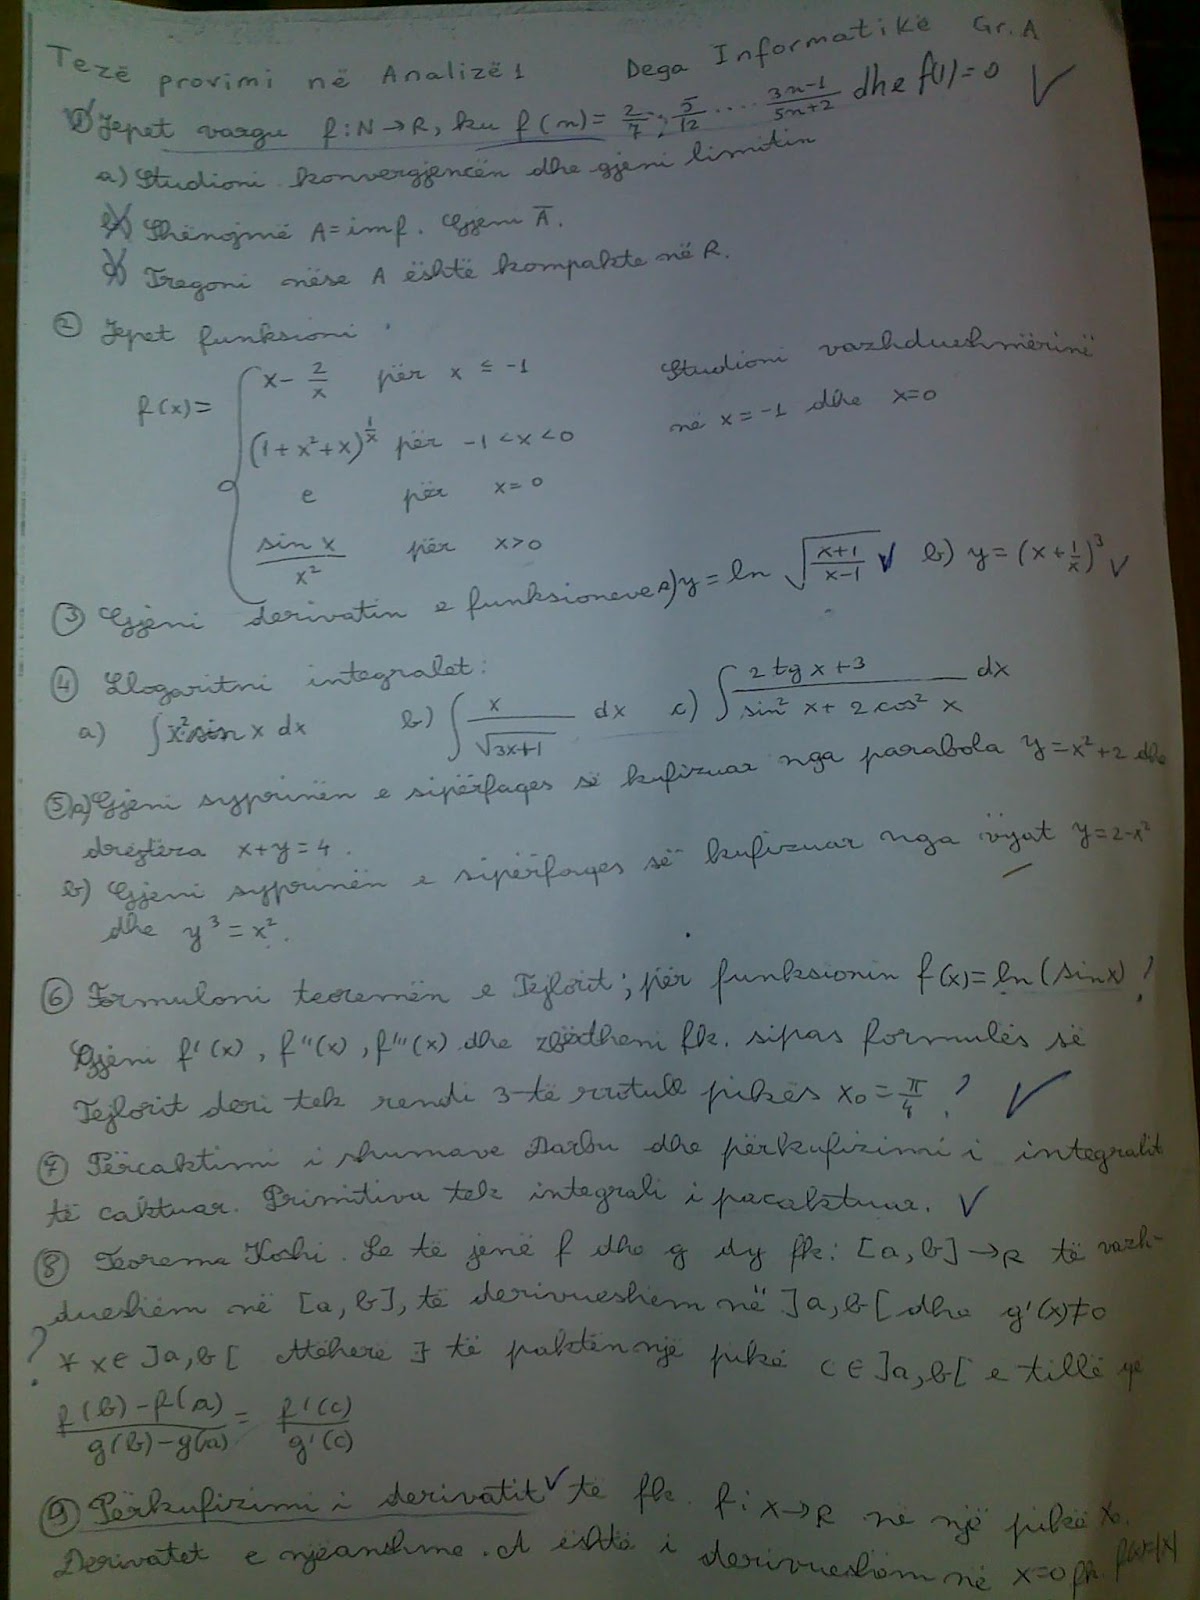 Tezë provimi në Analizë 1 Dega Informatikë Gr. A
1) Jepet vargu f: N → R, ku f(n) = 2/7, 5/12 .... (3n-1)/(5n+2) dhe f(1) = 0
a) Studioni konvergjencën dhe gjeni limitin
b) Shënojmë A = imf. Gjeni A̅.
c) Tregoni nëse A është kompakte në R.
② Jepet funksioni
f(x) = { x - 2/x për x ≤ -1 Studioni vazhdueshmërinë
(1 + x² + x)^(1/x) për -1 < x < 0 në x = -1 dhe x=0
e për x = 0
sin x / x² për x>0
③ Gjeni derivatin e funksioneve a) y = ln √((x+1)/(x-1)) b) y = (x + 1/x)³
④ Llogaritni integralet:
a) ∫ x² sin x dx b) ∫ x/√(3x+1) dx c) ∫ (2 tg x + 3)/(sin² x + 2 cos² x) dx
⑤ a) Gjeni syprinën e sipërfaqes së kufizuar nga parabola y = x² + 2 dhe
drejtëza x+y = 4.
b) Gjeni syprinën e sipërfaqes së kufizuar nga vijat y = 2-x²
dhe y³ = x².
⑥ Formuloni teoremën e Tejlorit; për funksionin f(x) = ln(sinx) ?
Gjeni f'(x), f''(x), f'''(x) dhe zbërtheni fk. sipas formulës së
Tejlorit deri tek rendi 3-të rrotull pikës x₀ = π/4 ?
⑦ Përcaktimi i shumave Darbu dhe përkufizimi i integralit
të caktuar. Primitiva tek integrali i pacaktuar.
⑧ Teorema Koshi. Le të jenë f dhe g dy fk: [a, b] → R të vazh-
dueshëm në [a, b], të derivueshëm në ]a, b[ dhe g'(x) ≠ 0
? ∀ x ∈ ]a, b[ Atëherë ∃ të paktën një pikë c ∈ ]a, b[ e tillë që
(f(b) - f(a))/(g(b) - g(a)) = f'(c)/g'(c)
⑨ Përkufizimi i derivatit të fk. f: X → R në një pikë x₀.
Derivatet e njëanshme. A është i derivueshëm në x=0 fk. f(x)=|x|